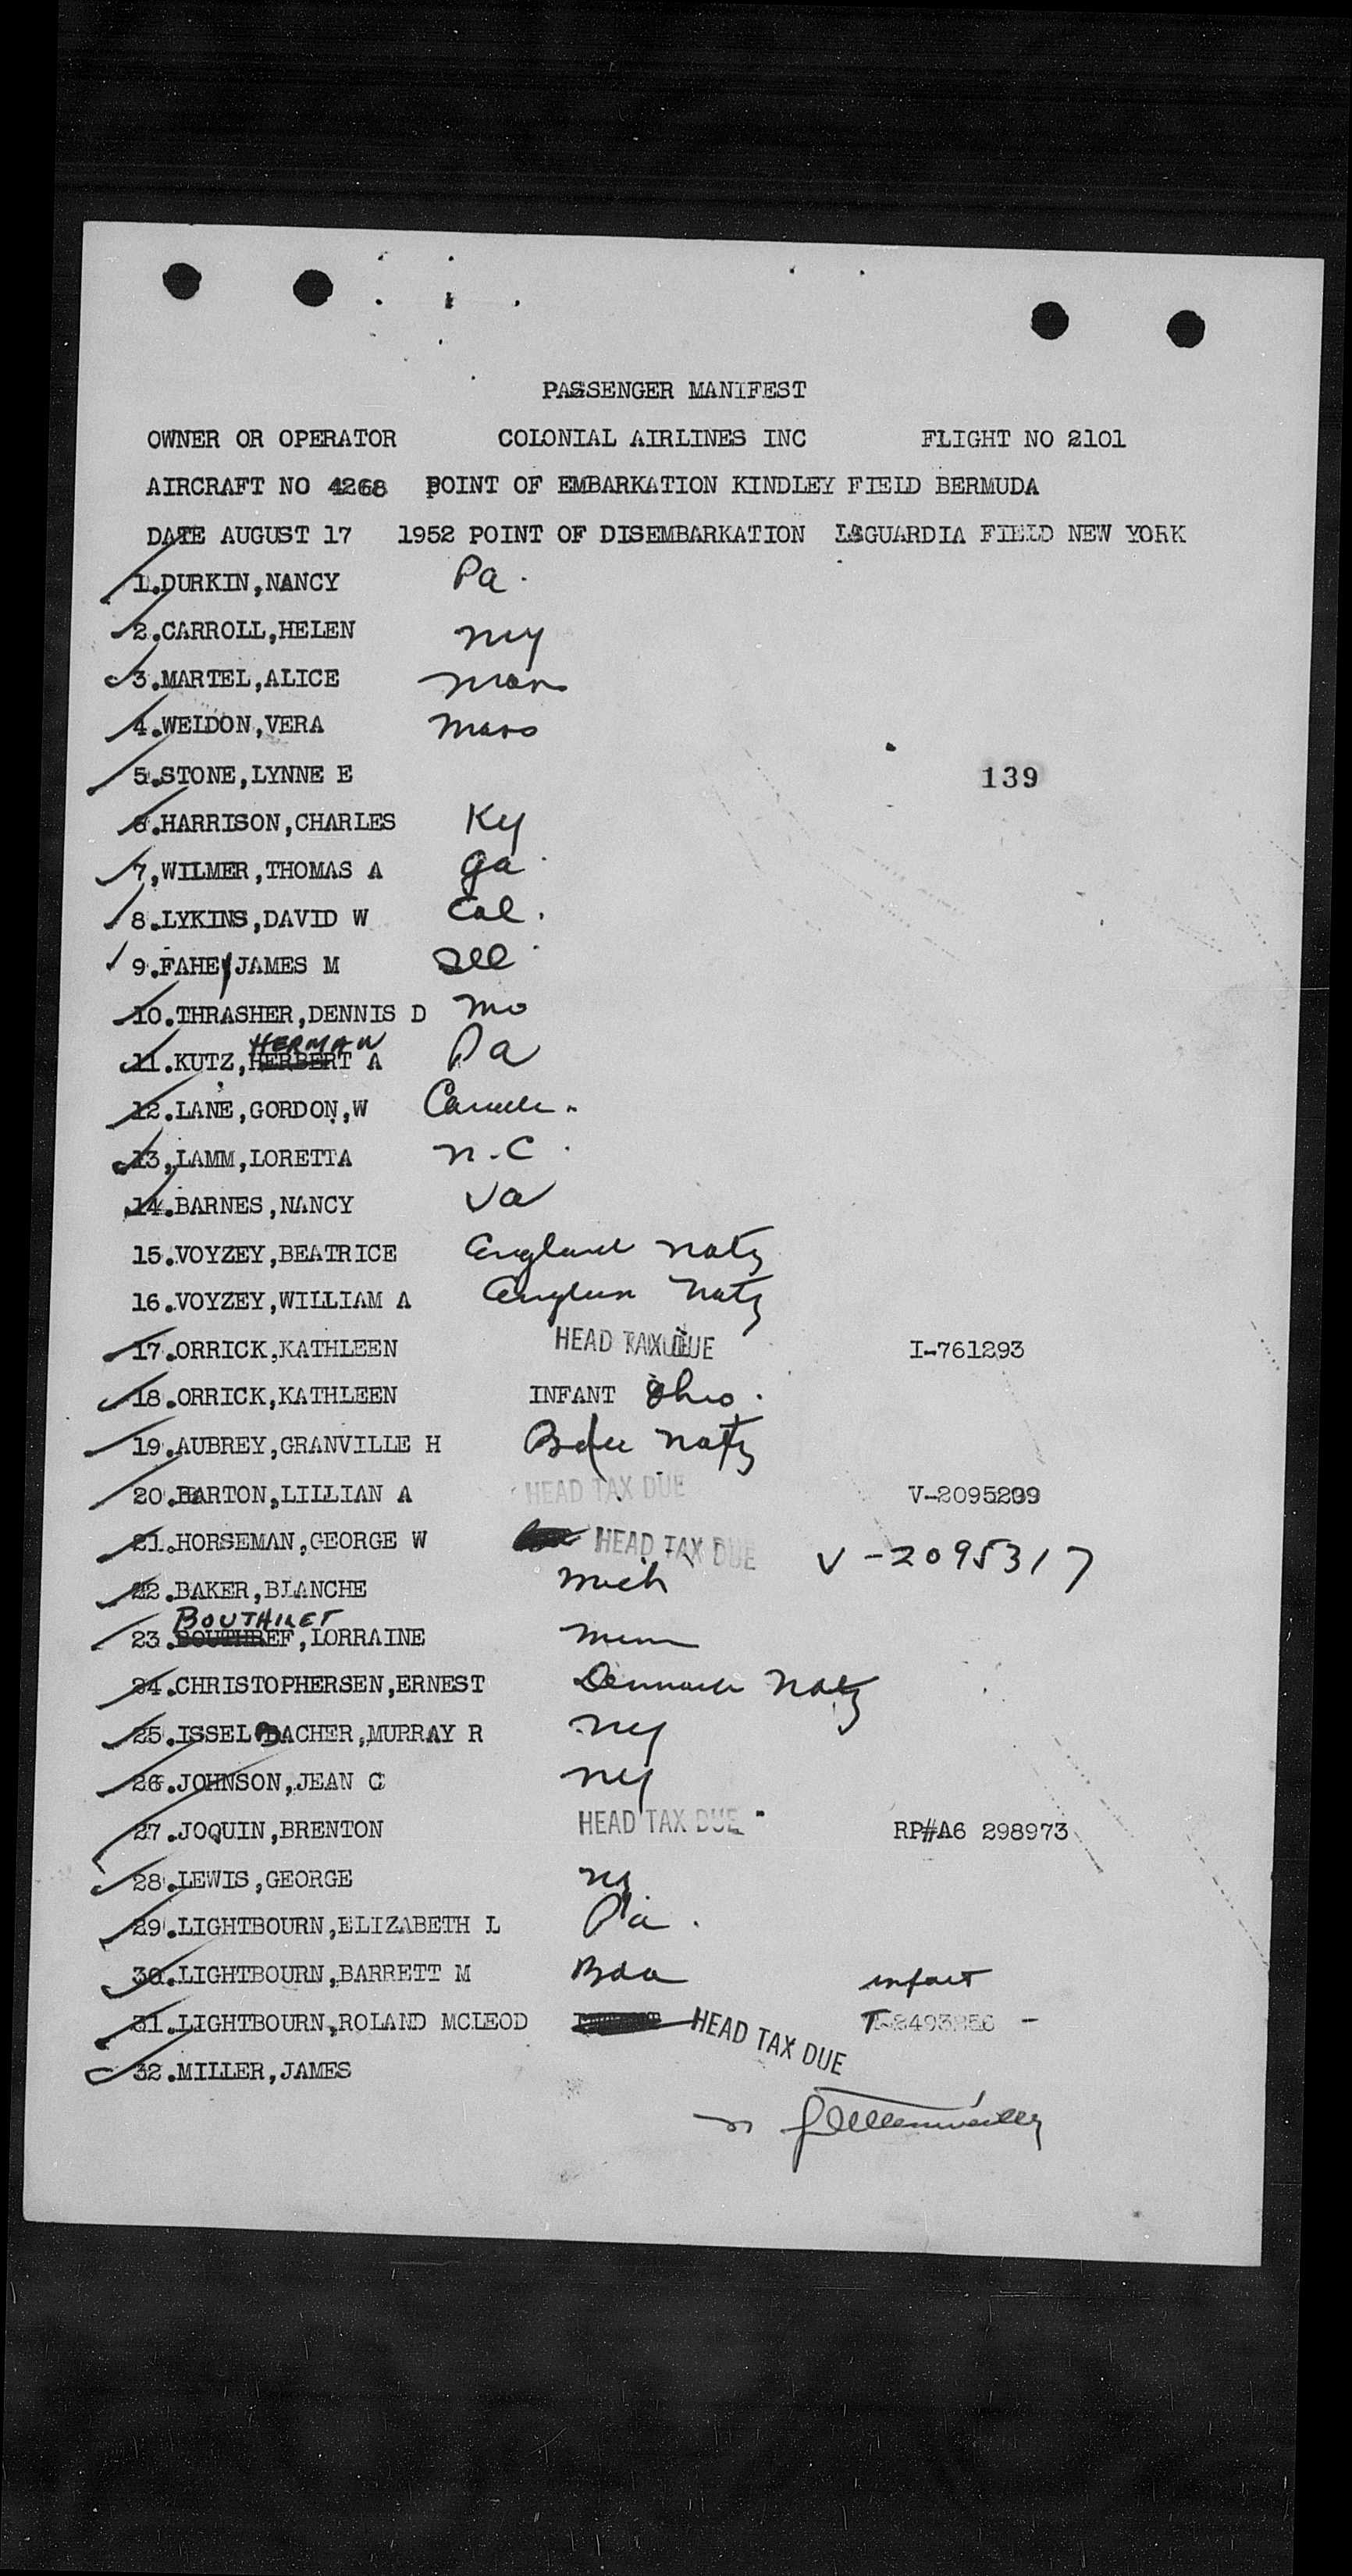 PASSENGER MANIFEST
OWNER OR OPERATOR COLONIAL AIRLINES INC FLIGHT NO 2101
AIRCRAFT NO 4268 POINT OF EMBARKATION KINDLEY FIELD BERMUDA
DATE AUGUST 17 1952 POINT OF DISEMBARKATION LAGUARDIA FIELD NEW YORK
1.DURKIN,NANCY Pa.
2.CARROLL,HELEN NY
3.MARTEL,ALICE Mass
4.WELDON,VERA Mass
5.STONE,LYNNE E 139
6.HARRISON,CHARLES Ky
7,WILMER,THOMAS A Ga
8.LYKINS,DAVID W Cal.
9.FAHEY JAMES M Ill
10.THRASHER,DENNIS D Mo
HERMAN
11.KUTZ,HERBERT A Pa
12.LANE,GORDON,W
13,LAMM,LORETTA N.C.
14.BARNES,NANCY Va
15.VOYZEY,BEATRICE England Natz
16.VOYZEY,WILLIAM A Natz
17.ORRICK,KATHLEEN HEAD TAX DUE I-761293
18.ORRICK,KATHLEEN INFANT Ohio.
19.AUBREY,GRANVILLE H Natz
20.BARTON,LILLIAN A HEAD TAX DUE V-2095299
21.HORSEMAN,GEORGE W HEAD TAX DUE V-2095317
22.BAKER,BLANCHE Mich
BOUTHILET
23. LORRAINE Minn
24.CHRISTOPHERSEN,ERNEST Denmark Natz
25.ISSELBACHER,MURRAY R NY
26.JOHNSON,JEAN C NY
27.JOQUIN,BRENTON HEAD TAX DUE RP#A6 298973
28.LEWIS,GEORGE NY
29.LIGHTBOURN,ELIZABETH L Pa.
30.LIGHTBOURN,BARRETT M Bda infant
31.LIGHTBOURN,ROLAND MCLEOD HEAD TAX DUE
32.MILLER,JAMES